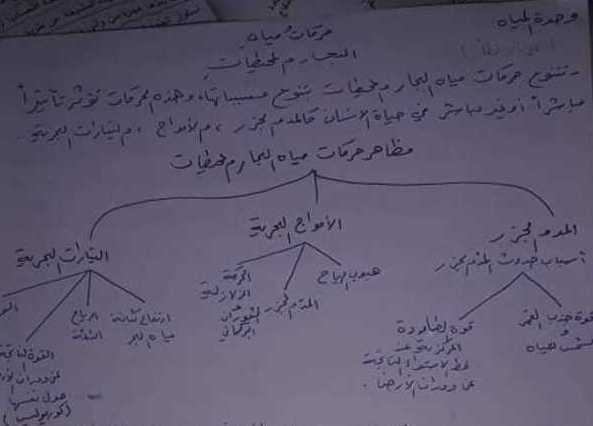 وحدة المياه
حركات مياه
البحار والمحيطات
- تتنوع حركات مياه البحار والمحيطات بتنوع مسبباتها، وهذه الحركات تؤثر تأثيراً
مباشراً أو غير مباشر في حياة الإنسان كالمد والجزر، والأمواج، والتيارات البحرية.
مظاهر حركات مياه البحار والمحيطات
المد والجزر
أسباب حدوث المد والجزر
قوة جذب القمر
و
الشمس للمياه
قوة الطاردة
المركزية عند
خط الاستواء الناتجة
عن دوران الأرض.
الأمواج البحرية
هبوب الرياح
المد والجزر
الحركة
الزلزالية
والثوران
البركاني
التيارات البحرية
ارتفاع كثافة
مياه البحر
الرياح
القوة الناتجة
عن دوران الأرض
حول نفسها
(كوريوليس)